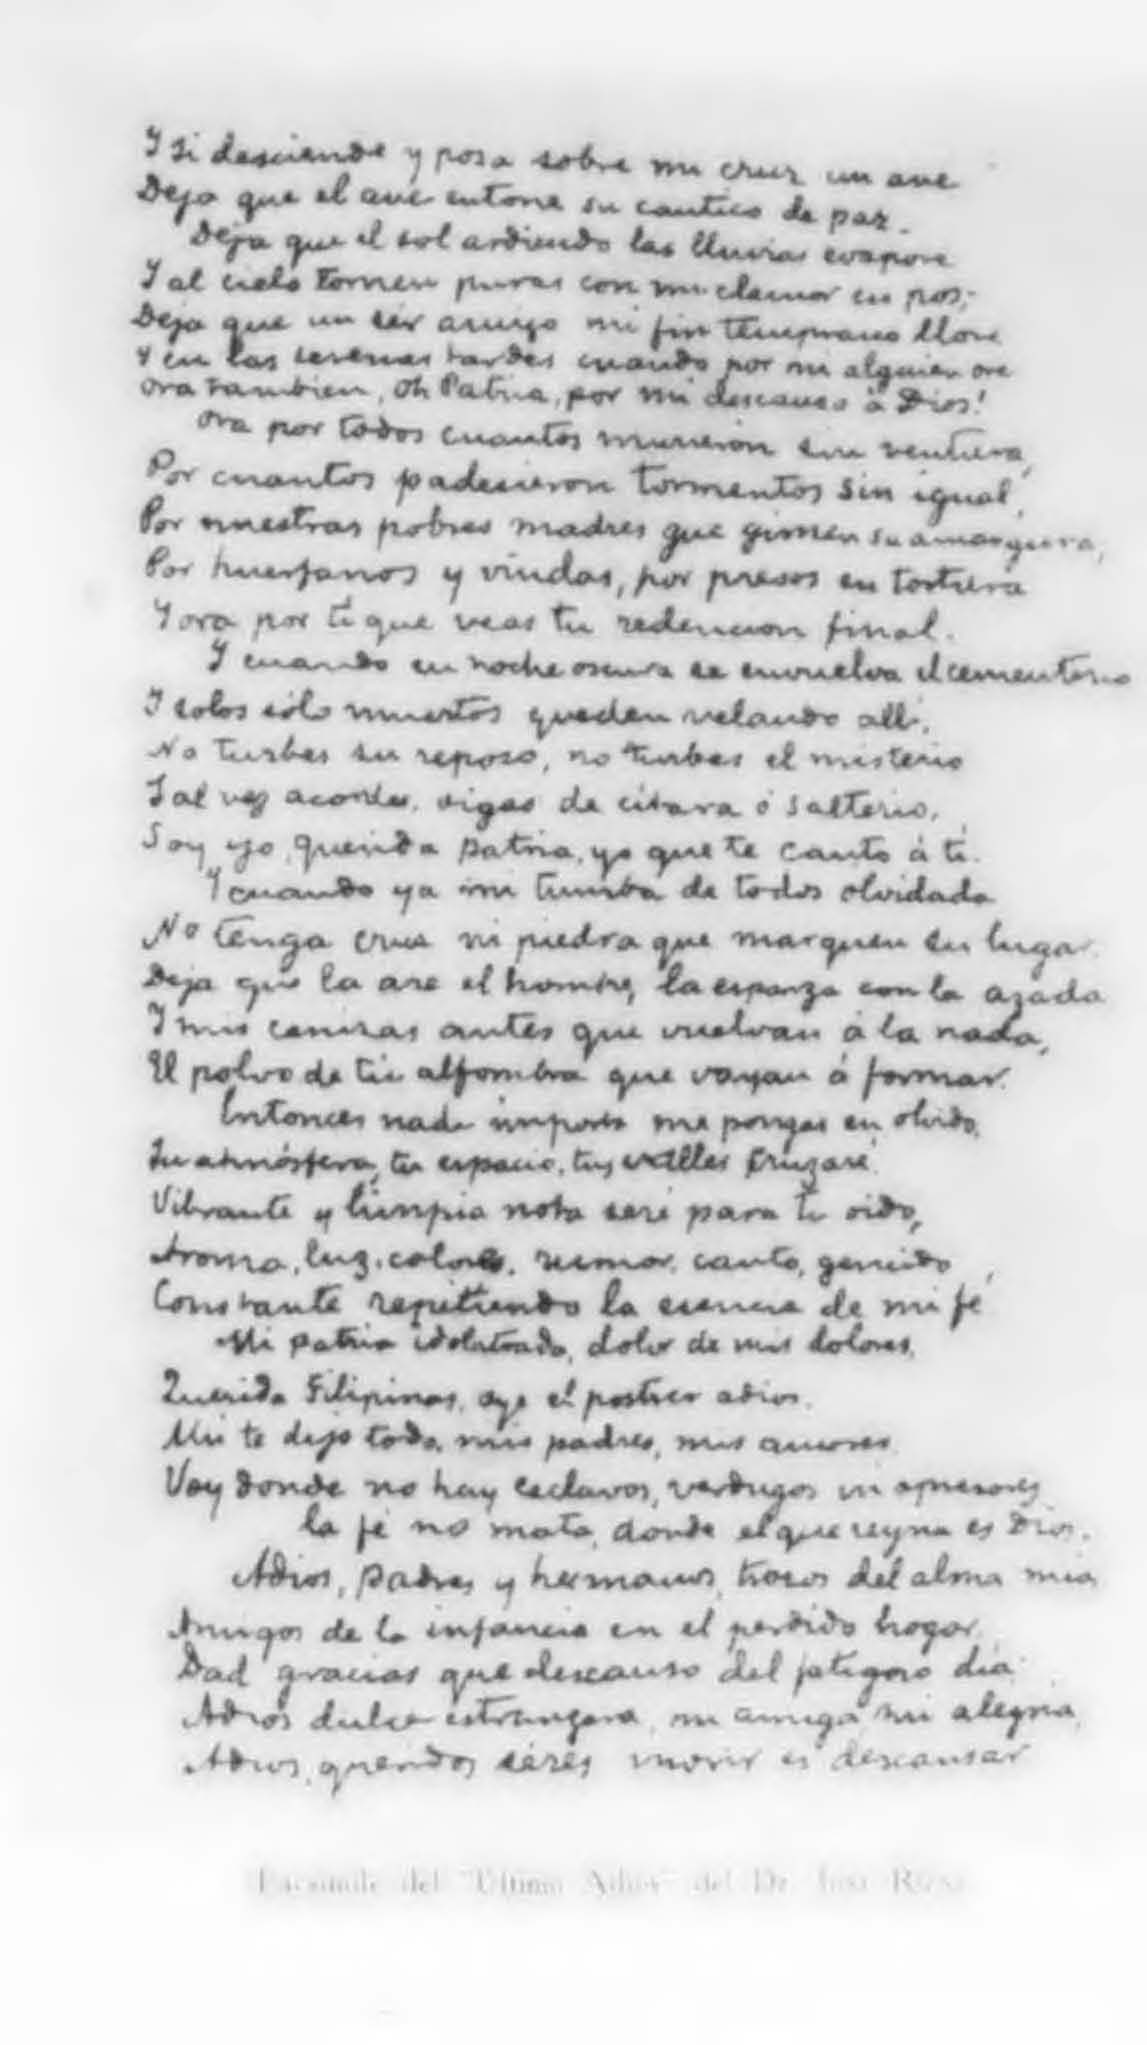 Y si desciende y posa sobre mi cruz un ave
Deja que el ave entone su cantico de paz.
Deja que el sol ardiendo las lluvias evapore
Y al cielo tornen puras con mi clamor en pos;
Deja que un sér amigo mi fin temprano llore
Y en las serenas tardes cuando por mi alguien ore
Ora tambien, Oh Patria, por mi descanso á Dios!
Ora por todos cuantos murieron sin ventura,
Por cuantos padecieron tormentos sin igual,
Por nuestras pobres madres que gimen su amargura,
Por huerfanos y viudas, por presos en tortura
Y ora por ti que veas tu redencion final.
Y cuando en noche oscura se envuelva el cementerio
Y solos sólo muertos queden velando allí,
No turbes su reposo, no turbes el misterio
Tal vez acordes oigas de citara ó salterio,
Soy yo, querida Patria, yo que te canto á ti.
Y cuando ya mi tumba de todos olvidada
No tenga cruz ni piedra que marquen su lugar
Deja que la are el hombre, la esparza con la azada
Y mis cenizas antes que vuelvan á la nada,
El polvo de tu alfombra que vayan á formar.
Entonces nada importa me pongas en olvido,
Tu atmósfera, tu espacio, tus valles cruzaré
Vibrante y limpia nota seré para tu oido,
Aroma, luz, colores, rumor, canto, gemido
Constante repitiendo la esencia de mi fé
Mi Patria idolatrada, dolor de mis dolores,
Querida Filipinas, oye el postrer adios.
Ahi te dejo todo, mis padres, mis amores
Voy donde no hay esclavos, verdugos ni opresores
la fé no mata, donde el que reyna es Dios.
Adios, padres y hermanos, trozos del alma mia
Amigos de la infancia en el perdido hogar
Dad gracias que descanso del fatigoso dia
Adios dulce estrangera, mi amiga mi alegria
Adios, queridos séres morir es descansar
Facsimile del "Ultimo Adios" del Dr. José Rizal